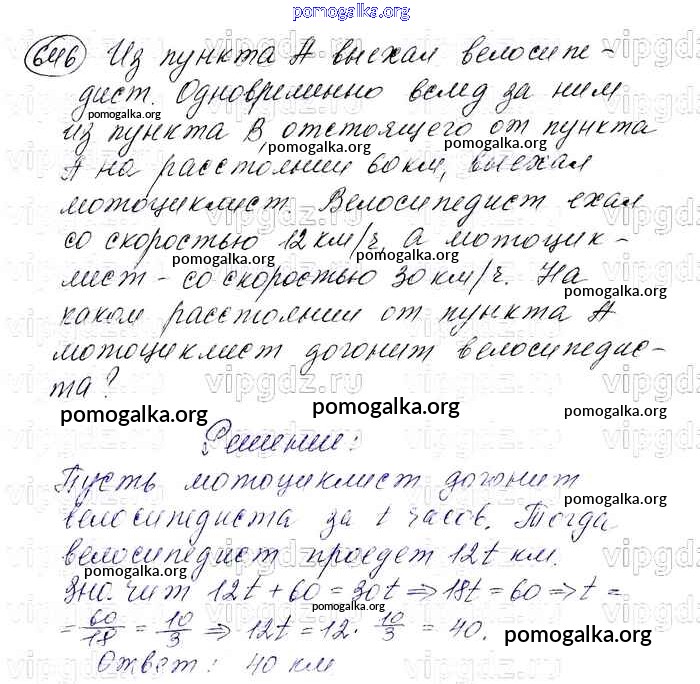 pomogalka.org
646 Из пункта А выехал велосипе-
дист. Одновременно вслед за ним
pomogalka.org
из пункта В, отстоящего от пункта
pomogalka.org pomogalka.org
А на расстоянии 60 км, выехал
мотоциклист. Велосипедист ехал
со скоростью 12 км/ч, а мотоцик-
pomogalka.org pomogalka.org
лист - со скоростью 30 км/ч. На
pomogalka.org
каком расстоянии от пункта А
мотоциклист догонит велосипедис-
та?
vipgdz.ru
pomogalka.org pomogalka.org pomogalka.org
Решение:
Пусть мотоциклист догонит
pomogalka.org
велосипедиста за t часов. Тогда
велосипедист проедет 12t км.
pomogalka.org pomogalka.org
Значит 12t + 60 = 30t ⇒ 18t = 60 ⇒ t =
pomogalka.org
= 60/18 = 10/3 ⇒ 12t = 12 · 10/3 = 40.
pomogalka.org
Ответ: 40 км
pomogalka.org